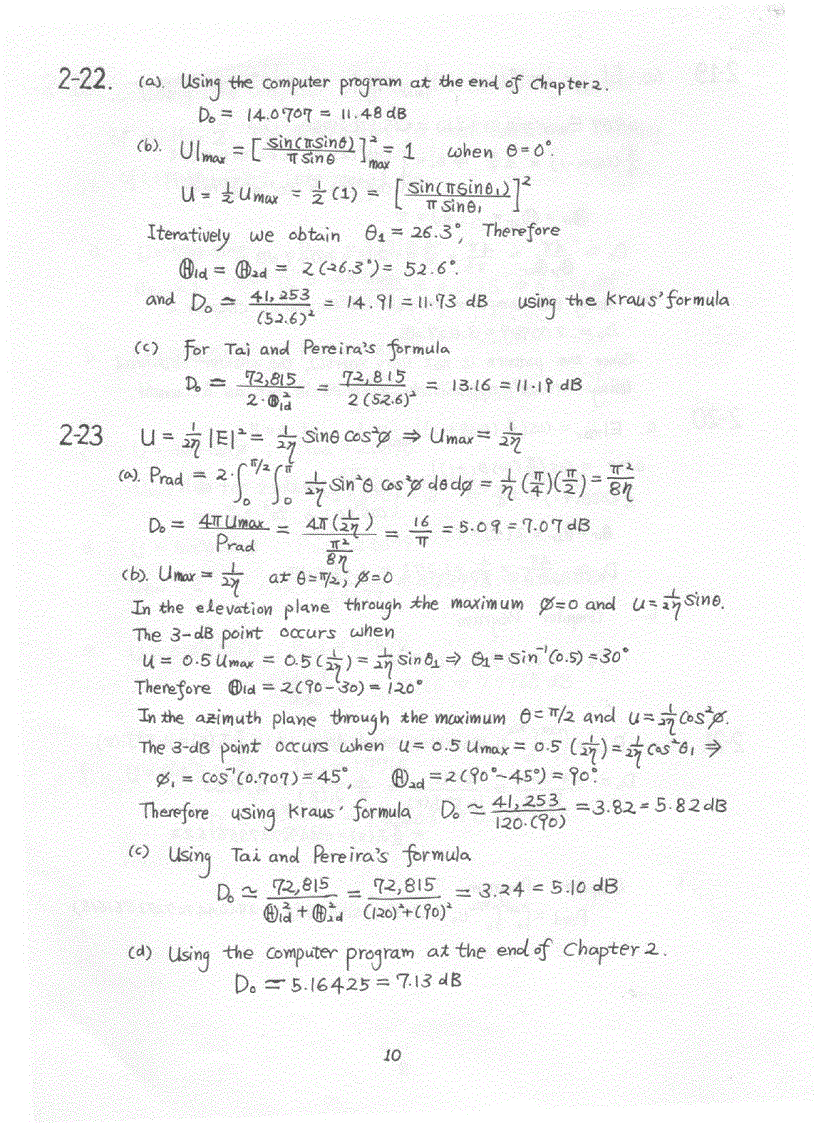 2-22. (a). Using the computer program at the end of Chapter 2.
D₀ = 14.0707 = 11.48 dB
(b). U|max = [sin(π sinθ) / π sinθ]²max = 1 when θ = 0°.
U = ½ Umax = ½ (1) = [sin(π sinθ₁) / π sinθ₁]²
Iteratively we obtain θ₁ = 26.3°, Therefore
Θ₁d = Θ₂d = 2(26.3°) = 52.6°.
and D₀ ≃ 41,253 / (52.6)² = 14.91 = 11.73 dB using the Kraus' formula
(c) For Tai and Pereira's formula
D₀ ≃ 72,815 / 2·Θ₁d² = 72,815 / 2(52.6)² = 13.16 = 11.19 dB
2-23 U = 1/2η |E|² = 1/2η sinθ cos²φ ⇒ Umax = 1/2η
(a). Prad = 2·∫₀^π/2 ∫₀^π 1/2η sin²θ cos²φ dθdφ = 1/η (π/4)(π/2) = π²/8η
D₀ = 4πUmax / Prad = 4π(1/2η) / (π²/8η) = 16/π = 5.09 = 7.07 dB
(b). Umax = 1/2η at θ = π/2, φ = 0
In the elevation plane through the maximum φ=0 and U = 1/2η sinθ.
The 3-dB point occurs when
U = 0.5 Umax = 0.5(1/2η) = 1/2η sinθ₁ ⇒ θ₁ = sin⁻¹(0.5) = 30°
Therefore Θ₁d = 2(90-30) = 120°
In the azimuth plane through the maximum θ = π/2 and U = 1/2η cos²φ.
The 3-dB point occurs when U = 0.5 Umax = 0.5 (1/2η) = 1/2η cos²θ₁ ⇒
φ₁ = cos⁻¹(0.707) = 45°, Θ₂d = 2(90°-45°) = 90°.
Therefore using Kraus' formula D₀ ≃ 41,253 / 120·(90) = 3.82 = 5.82 dB
(c) Using Tai and Pereira's formula
D₀ ≃ 72,815 / Θ₁d² + Θ₂d² = 72,815 / (120)² + (90)² = 3.24 = 5.10 dB
(d) Using the computer program at the end of Chapter 2.
D₀ = 5.16425 = 7.13 dB
10